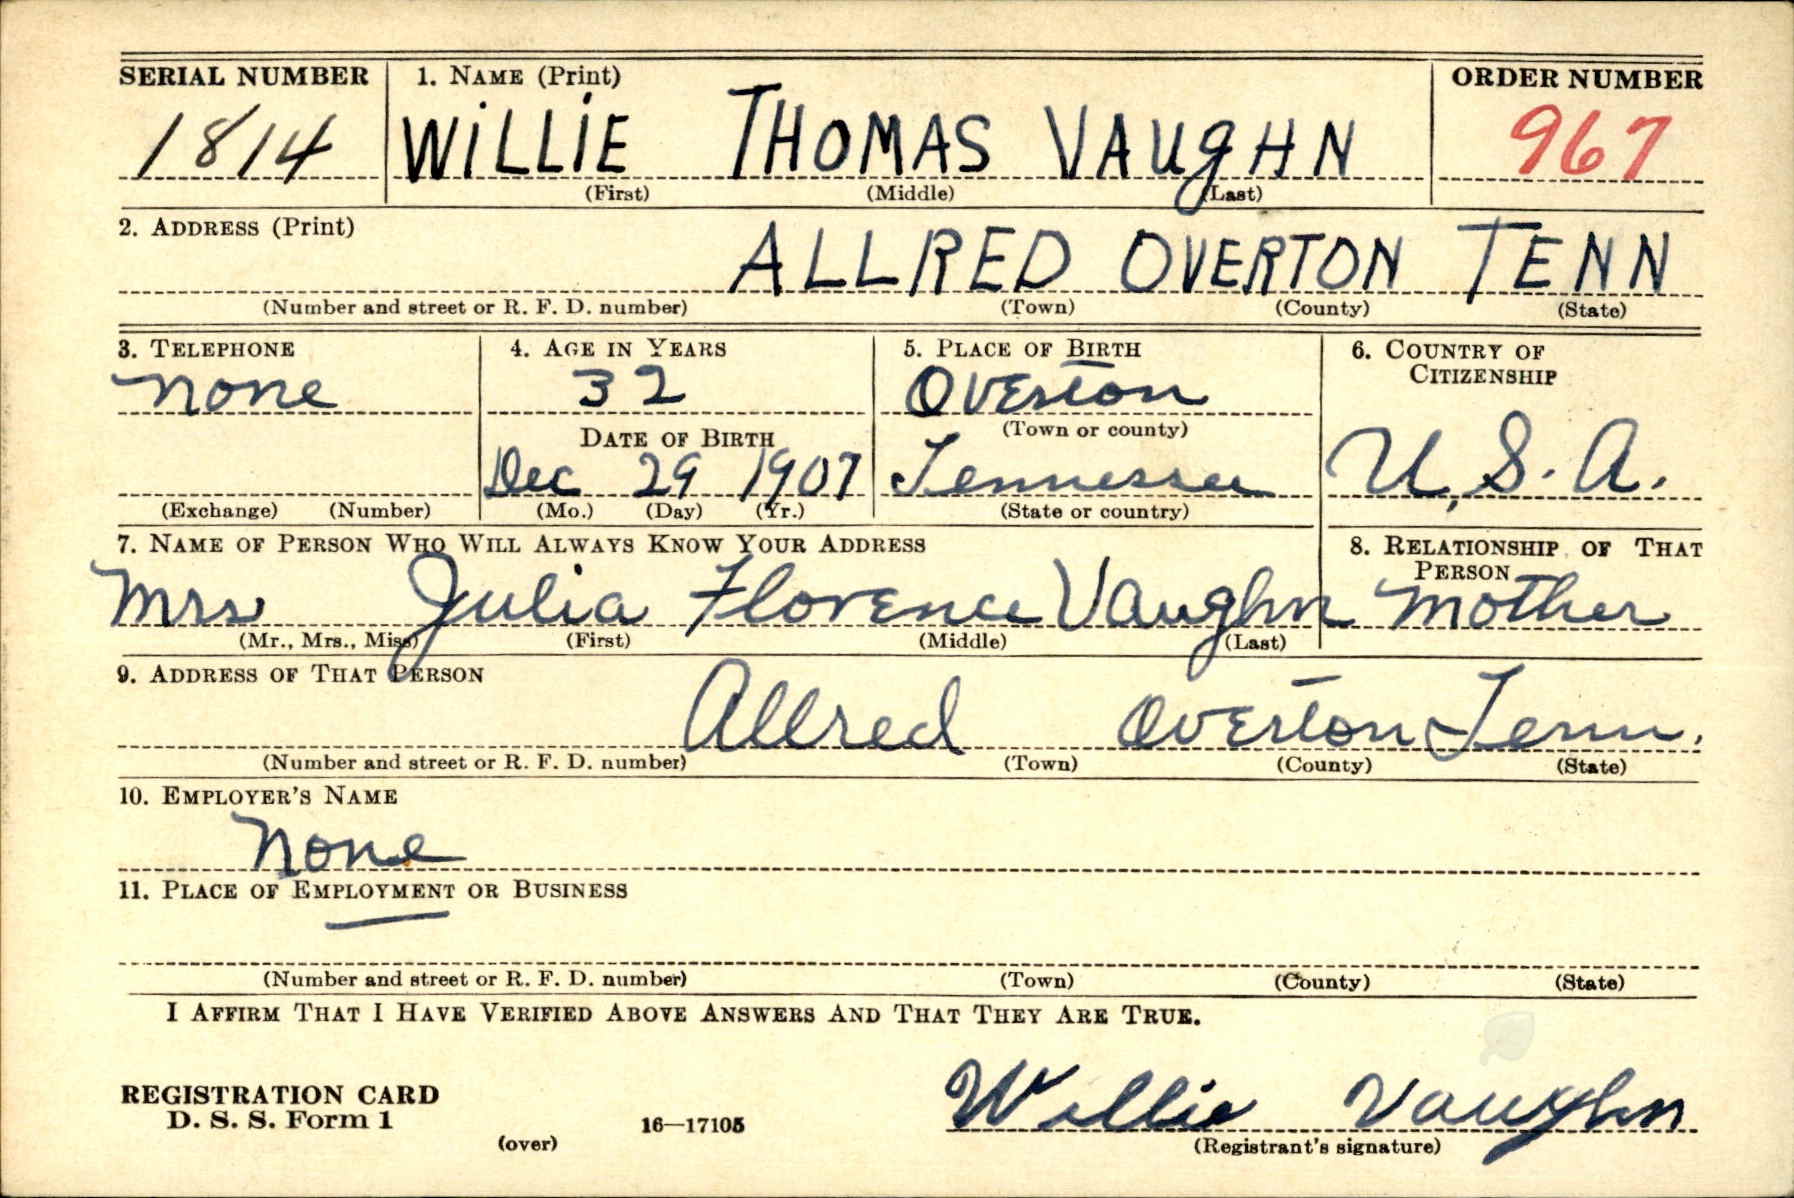 SERIAL NUMBER 1. NAME (Print) ORDER NUMBER
1814 WiLLiE THOMAS VAUgHN 967
(First) (Middle) (Last)
2. ADDRESS (Print)
ALLRED OVERTON TENN
(Number and street or R. F. D. number) (Town) (County) (State)
3. TELEPHONE 4. AGE IN YEARS 5. PLACE OF BIRTH 6. COUNTRY OF CITIZENSHIP
None 32 Overton
(Town or county)
DATE OF BIRTH
Dec 29 1907 Tennessee U.S.A.
(Exchange) (Number) (Mo.) (Day) (Yr.) (State or country)
7. NAME OF PERSON WHO WILL ALWAYS KNOW YOUR ADDRESS 8. RELATIONSHIP OF THAT PERSON
Mrs Julia Florence Vaughn Mother
(Mr., Mrs., Miss) (First) (Middle) (Last)
9. ADDRESS OF THAT PERSON
Allred Overton Tenn.
(Number and street or R. F. D. number) (Town) (County) (State)
10. EMPLOYER'S NAME
None
11. PLACE OF EMPLOYMENT OR BUSINESS
(Number and street or R. F. D. number) (Town) (County) (State)
I AFFIRM THAT I HAVE VERIFIED ABOVE ANSWERS AND THAT THEY ARE TRUE.
REGISTRATION CARD
D. S. S. Form 1
(over) 16—17105
Willie Vaughn
(Registrant's signature)